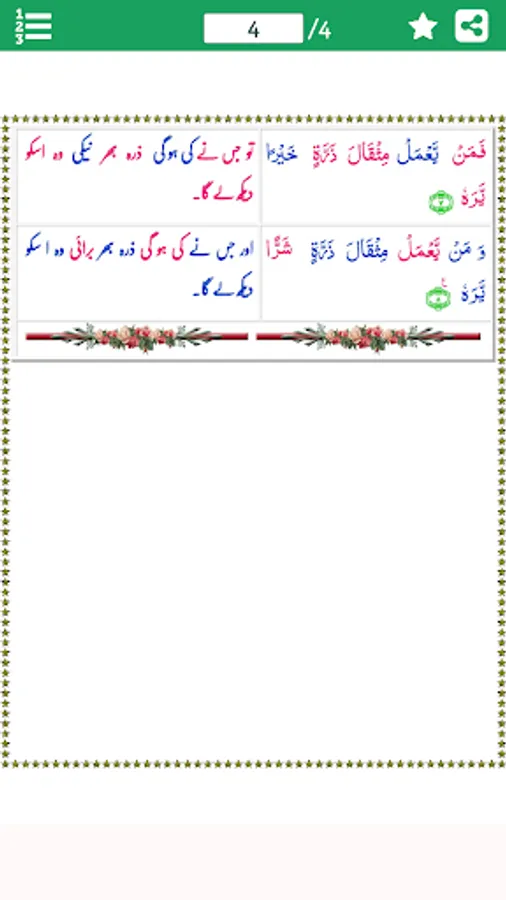 1
2
3
4 /4
فَمَنْ يَّعْمَلْ مِثْقَالَ ذَرَّةٍ خَيْرًا
يَّرَهٗ ﴿٧﴾
تو جس نے کی ہوگی ذرہ بھر نیکی وہ اسکو
دیکھ لے گا۔
وَ مَنْ يَّعْمَلْ مِثْقَالَ ذَرَّةٍ شَرًّا
يَّرَهٗ ﴿٨﴾
اور جس نے کی ہوگی ذرہ بھر برائی وہ اسکو
دیکھ لے گا۔